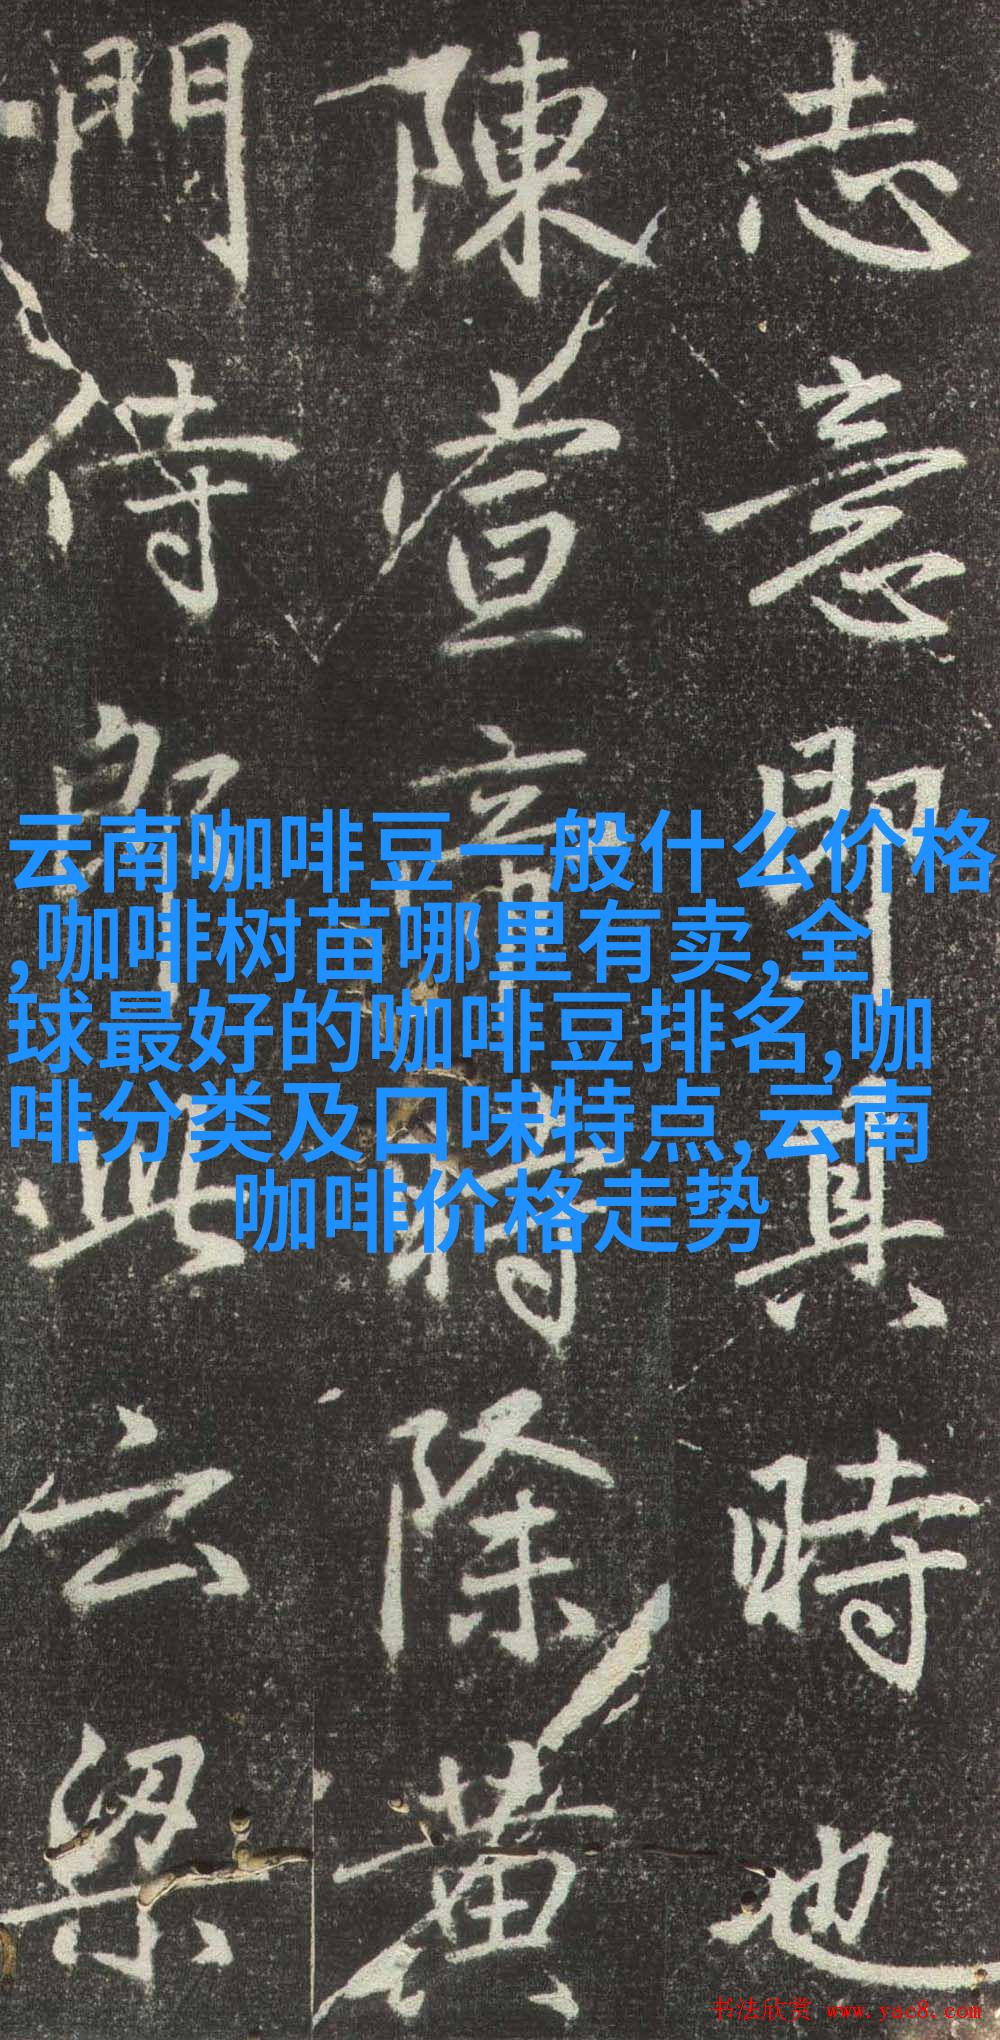 志意即真時也
陳宣帝時除黄
門侍郎此云梁
云南咖啡豆一般什么价格
,咖啡树苗哪里有卖,全
球最好的咖啡豆排名,咖
啡分类及口味特点,云南
咖啡价格走势
书法欣赏 www.yac8.com